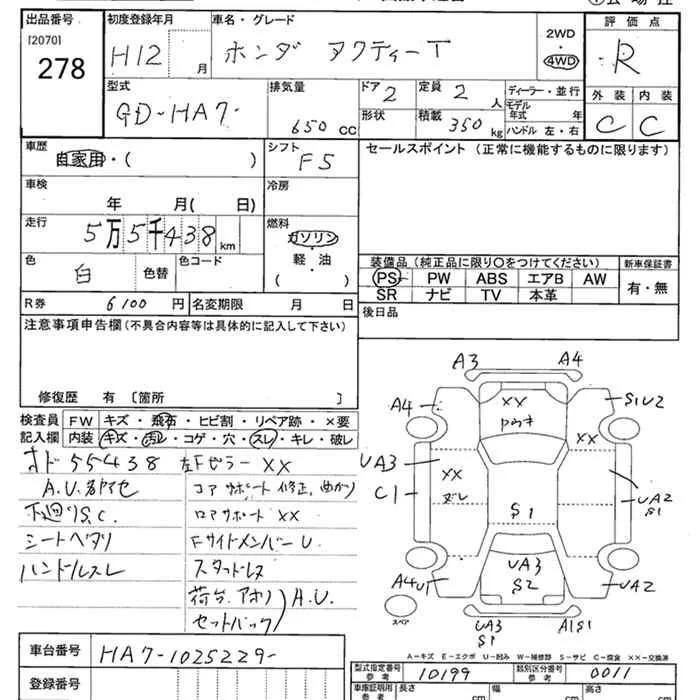 出品番号 初度登録年月 車名・グレード 2WD 評価点
[2070] 278 H12 月 ホンダ アクティー T ・ 4WD R
型式 排気量 ドア 定員 ディーラー・並行 外装 内装
GD-HA7 650 cc 2 2 人 モデル年式 年 C C
形状 積載 350 kg ハンドル 左・右
車歴 シフト セールスポイント (正常に機能するものに限ります)
自家用・( ) F5
車検 冷房
年 月( 日)
走行 燃料
5万5千438 km ガソリン
色 色コード 軽・油 装備品 (純正品に限り○をつけてください) 新車保証書
白 色替 ( ) PS PW ABS エアB AW 有・無
SR ナビ TV 本革
R券 6100 円 名変期限 月 日
注意事項申告欄 (不具合内容等は具体的に記入して下さい) 後日品
修復歴 有 〔箇所 〕
検査員 FW キズ・飛石・ヒビ割・リペア跡・×要
記入欄 内装 キズ・汚レ・コゲ・穴・スレ・キレ・破レ
オド 55438 左Fピラー XX
A.U.名ヤセ コアサポート 修正、曲がり
下廻りS.C. ロアサポート XX
シートヘタリ FサイドメンバーU
ハンドルスレ スタッドレス
荷台、アオリ A.U.
セットバック
A3 A4
A4 XX S1U2
XX
UA3 XX
C1 S1 UA2
S1
UA3
A4U1 S2 UA2
スペア UA3 A1S1
S1
A-キズ E-エクボ U-凹み W-補修跡 S-サビ C-腐食 XX-交換済
車台番号 HA7-1025229-
型式指定番号 参考 10199 類別区分番号 参考 0011
登録番号 車庫証明用 参考 長さ cm 幅 cm 高さ cm